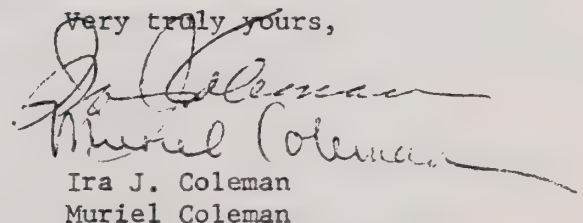 Very truly yours,
Ira J Coleman
Muriel Coleman
Ira J. Coleman
Muriel Coleman